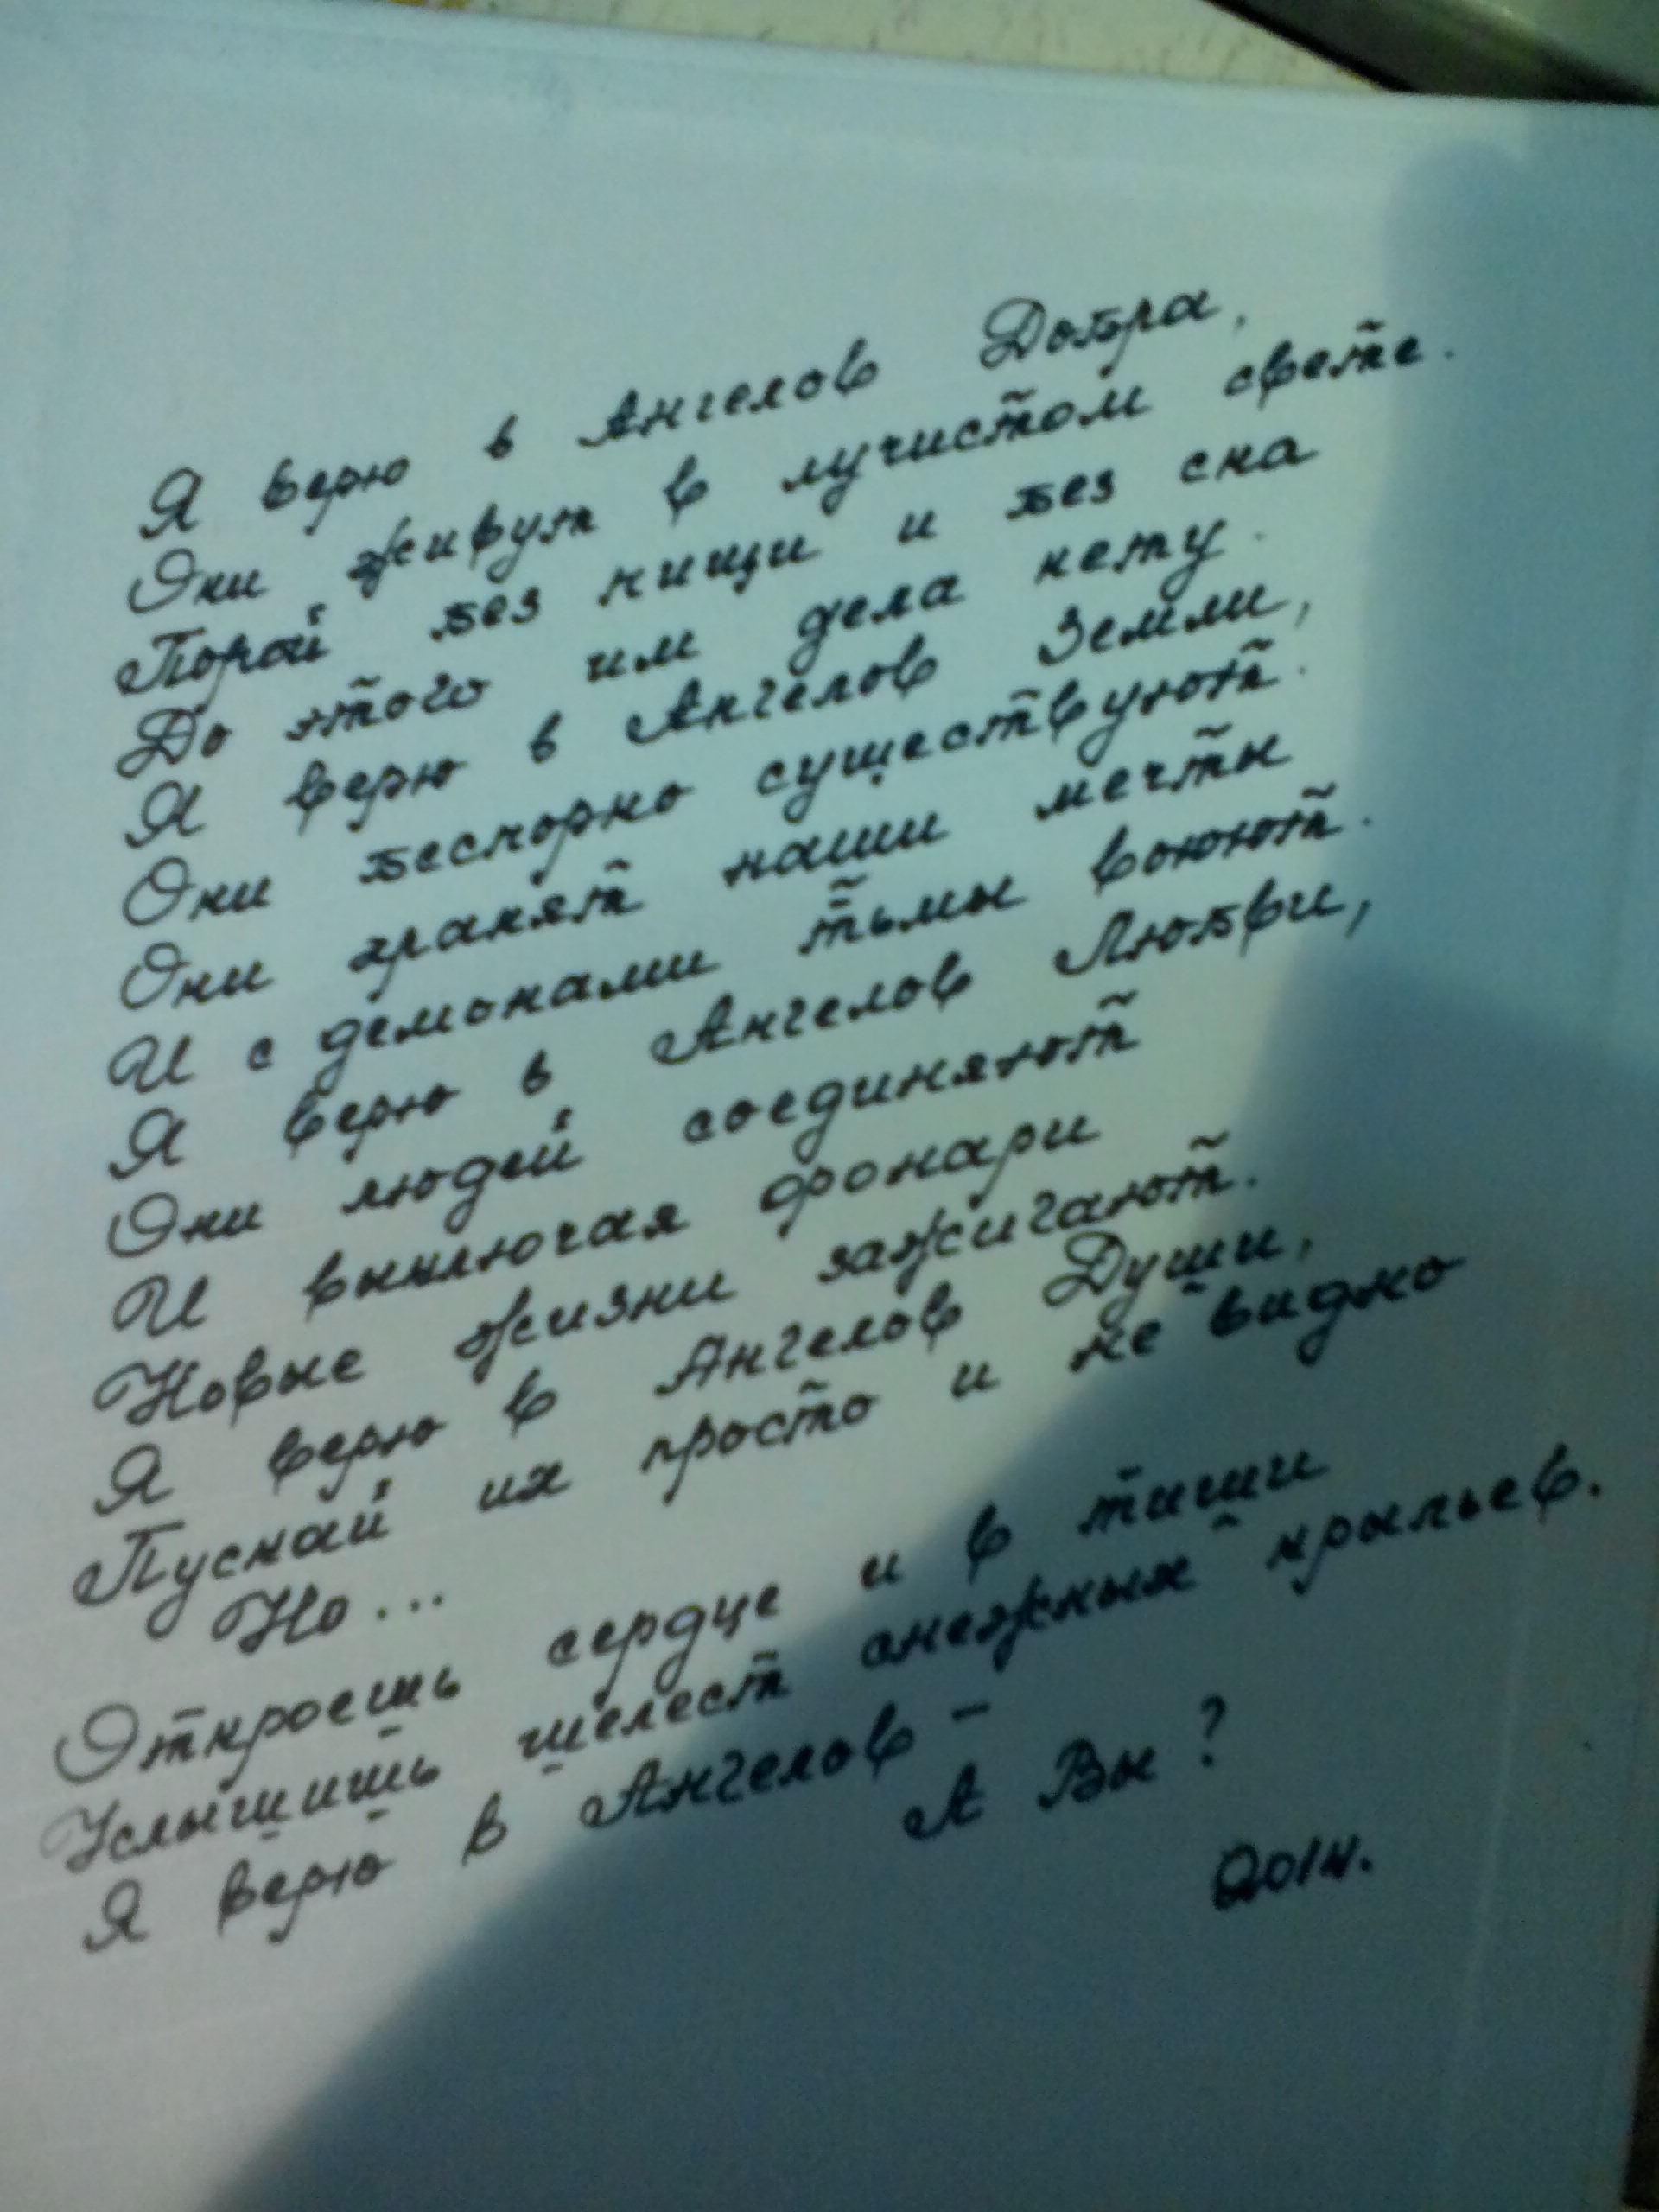 Я верю в Ангелов Добра,
Они живут в лучистом свете.
Порой без пищи и без сна
До этого им дела нету.
Я верю в Ангелов Земли,
Они бесспорно существуют.
Они хранят наши мечты
И с демонами тьмы воюют.
Я верю в Ангелов Любви,
Они людей соединяют
И выключая фонари
Новые жизни зажигают.
Я верю в Ангелов Души,
Пускай их просто и не видно
Но...
Откроешь сердце и в тиши
Услышишь шелест снежных крыльев.
Я верю в Ангелов –
А Вы?
2014.